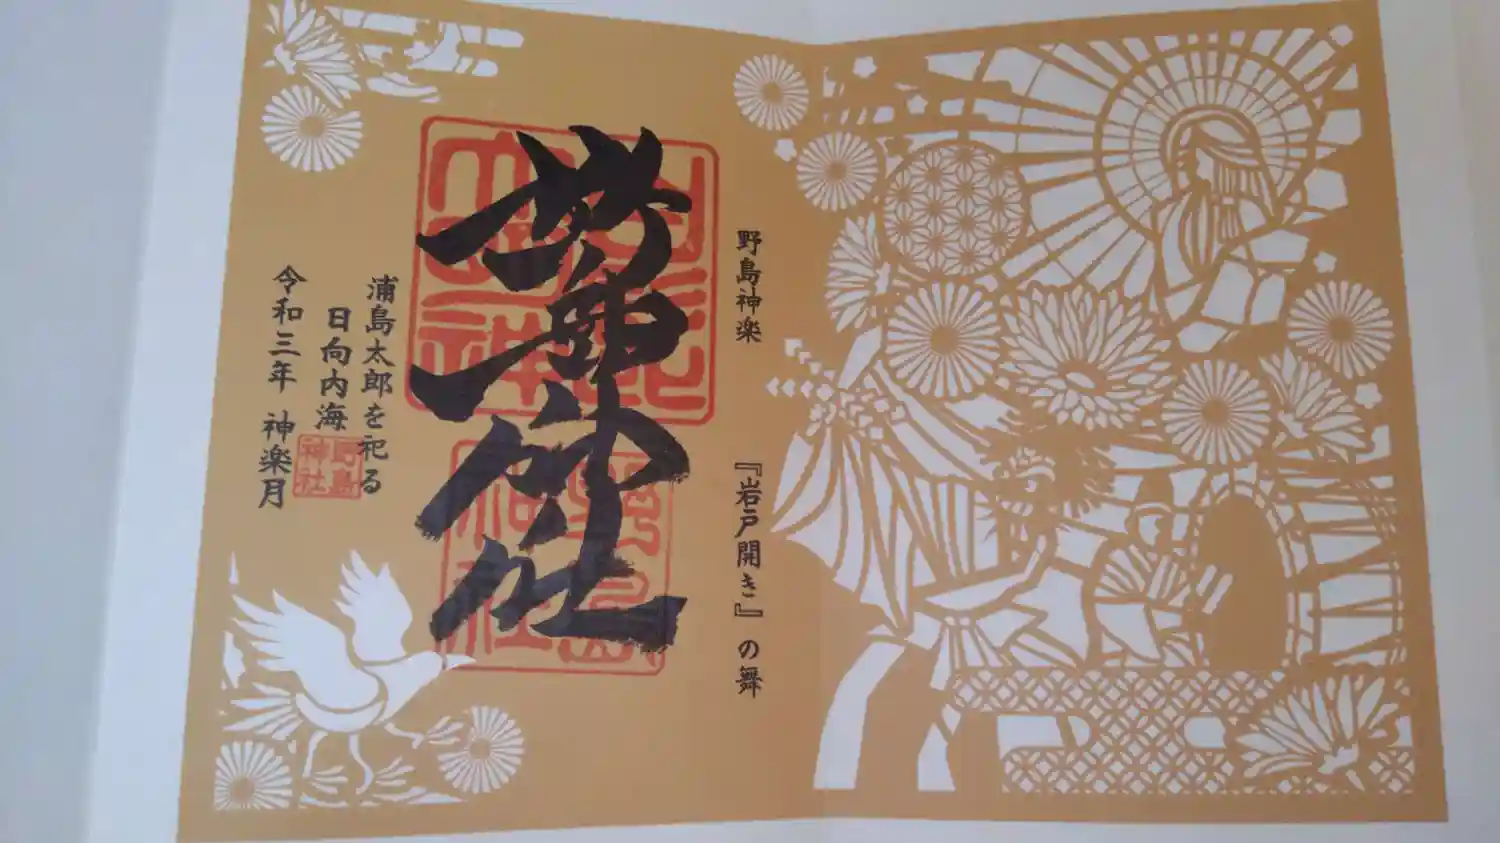 野島神楽
『岩戸開き』の舞
野島神社
浦島太郎を祀る
日向内海
野島
神社
令和三年 神楽月